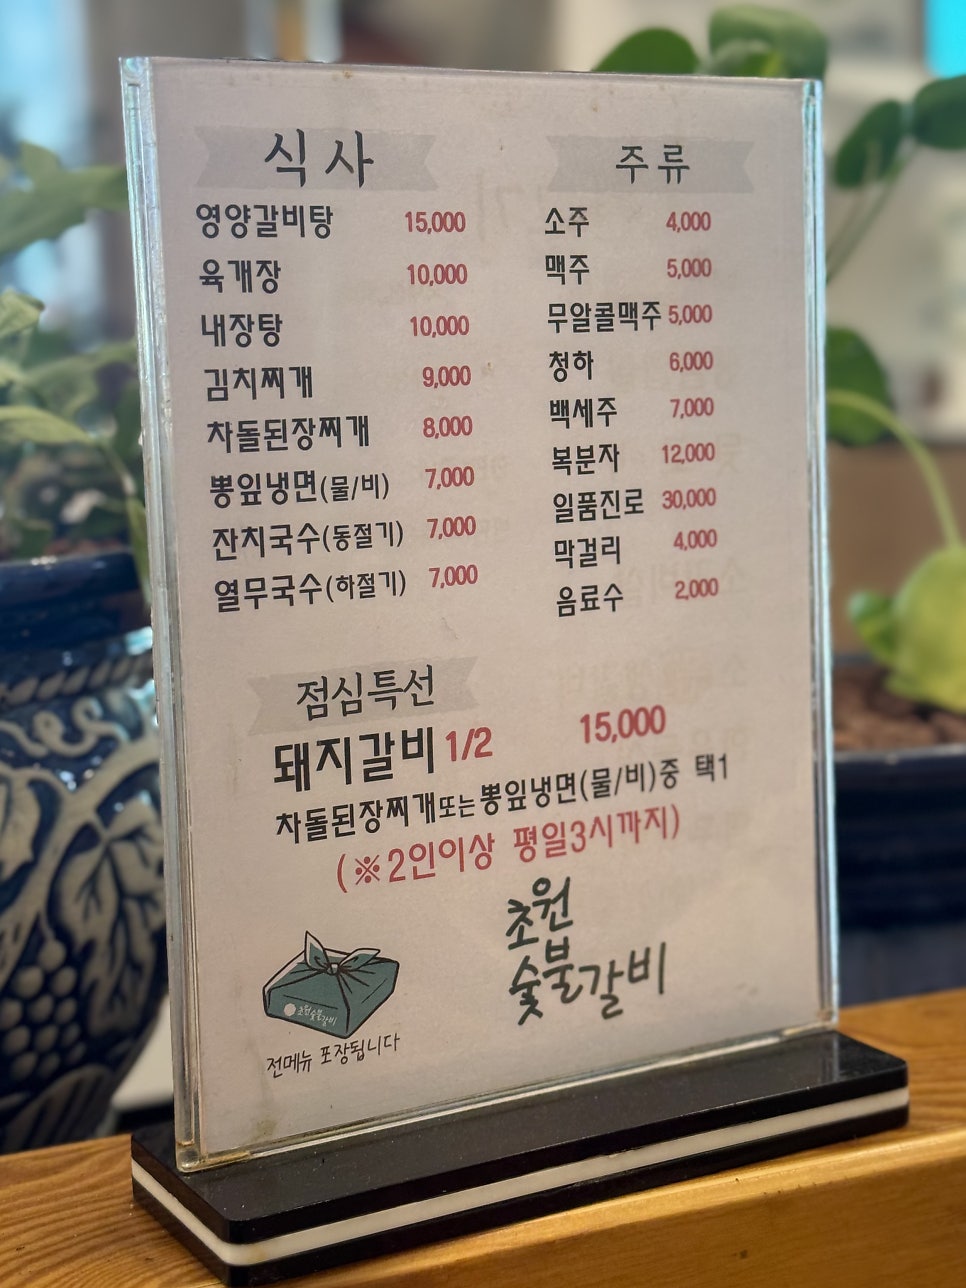 식사
영양갈비탕 15,000
육개장 10,000
내장탕 10,000
김치찌개 9,000
차돌된장찌개 8,000
뽕잎냉면(물/비) 7,000
잔치국수(동절기) 7,000
열무국수(하절기) 7,000
주류
소주 4,000
맥주 5,000
무알콜맥주 5,000
청하 6,000
백세주 7,000
복분자 12,000
일품진로 30,000
막걸리 4,000
음료수 2,000
점심특선
돼지갈비 1/2 15,000
차돌된장찌개또는뽕잎냉면(물/비)중 택1
(※2인이상 평일3시까지)
초원
숯불갈비
초원숯불갈비
전메뉴 포장됩니다